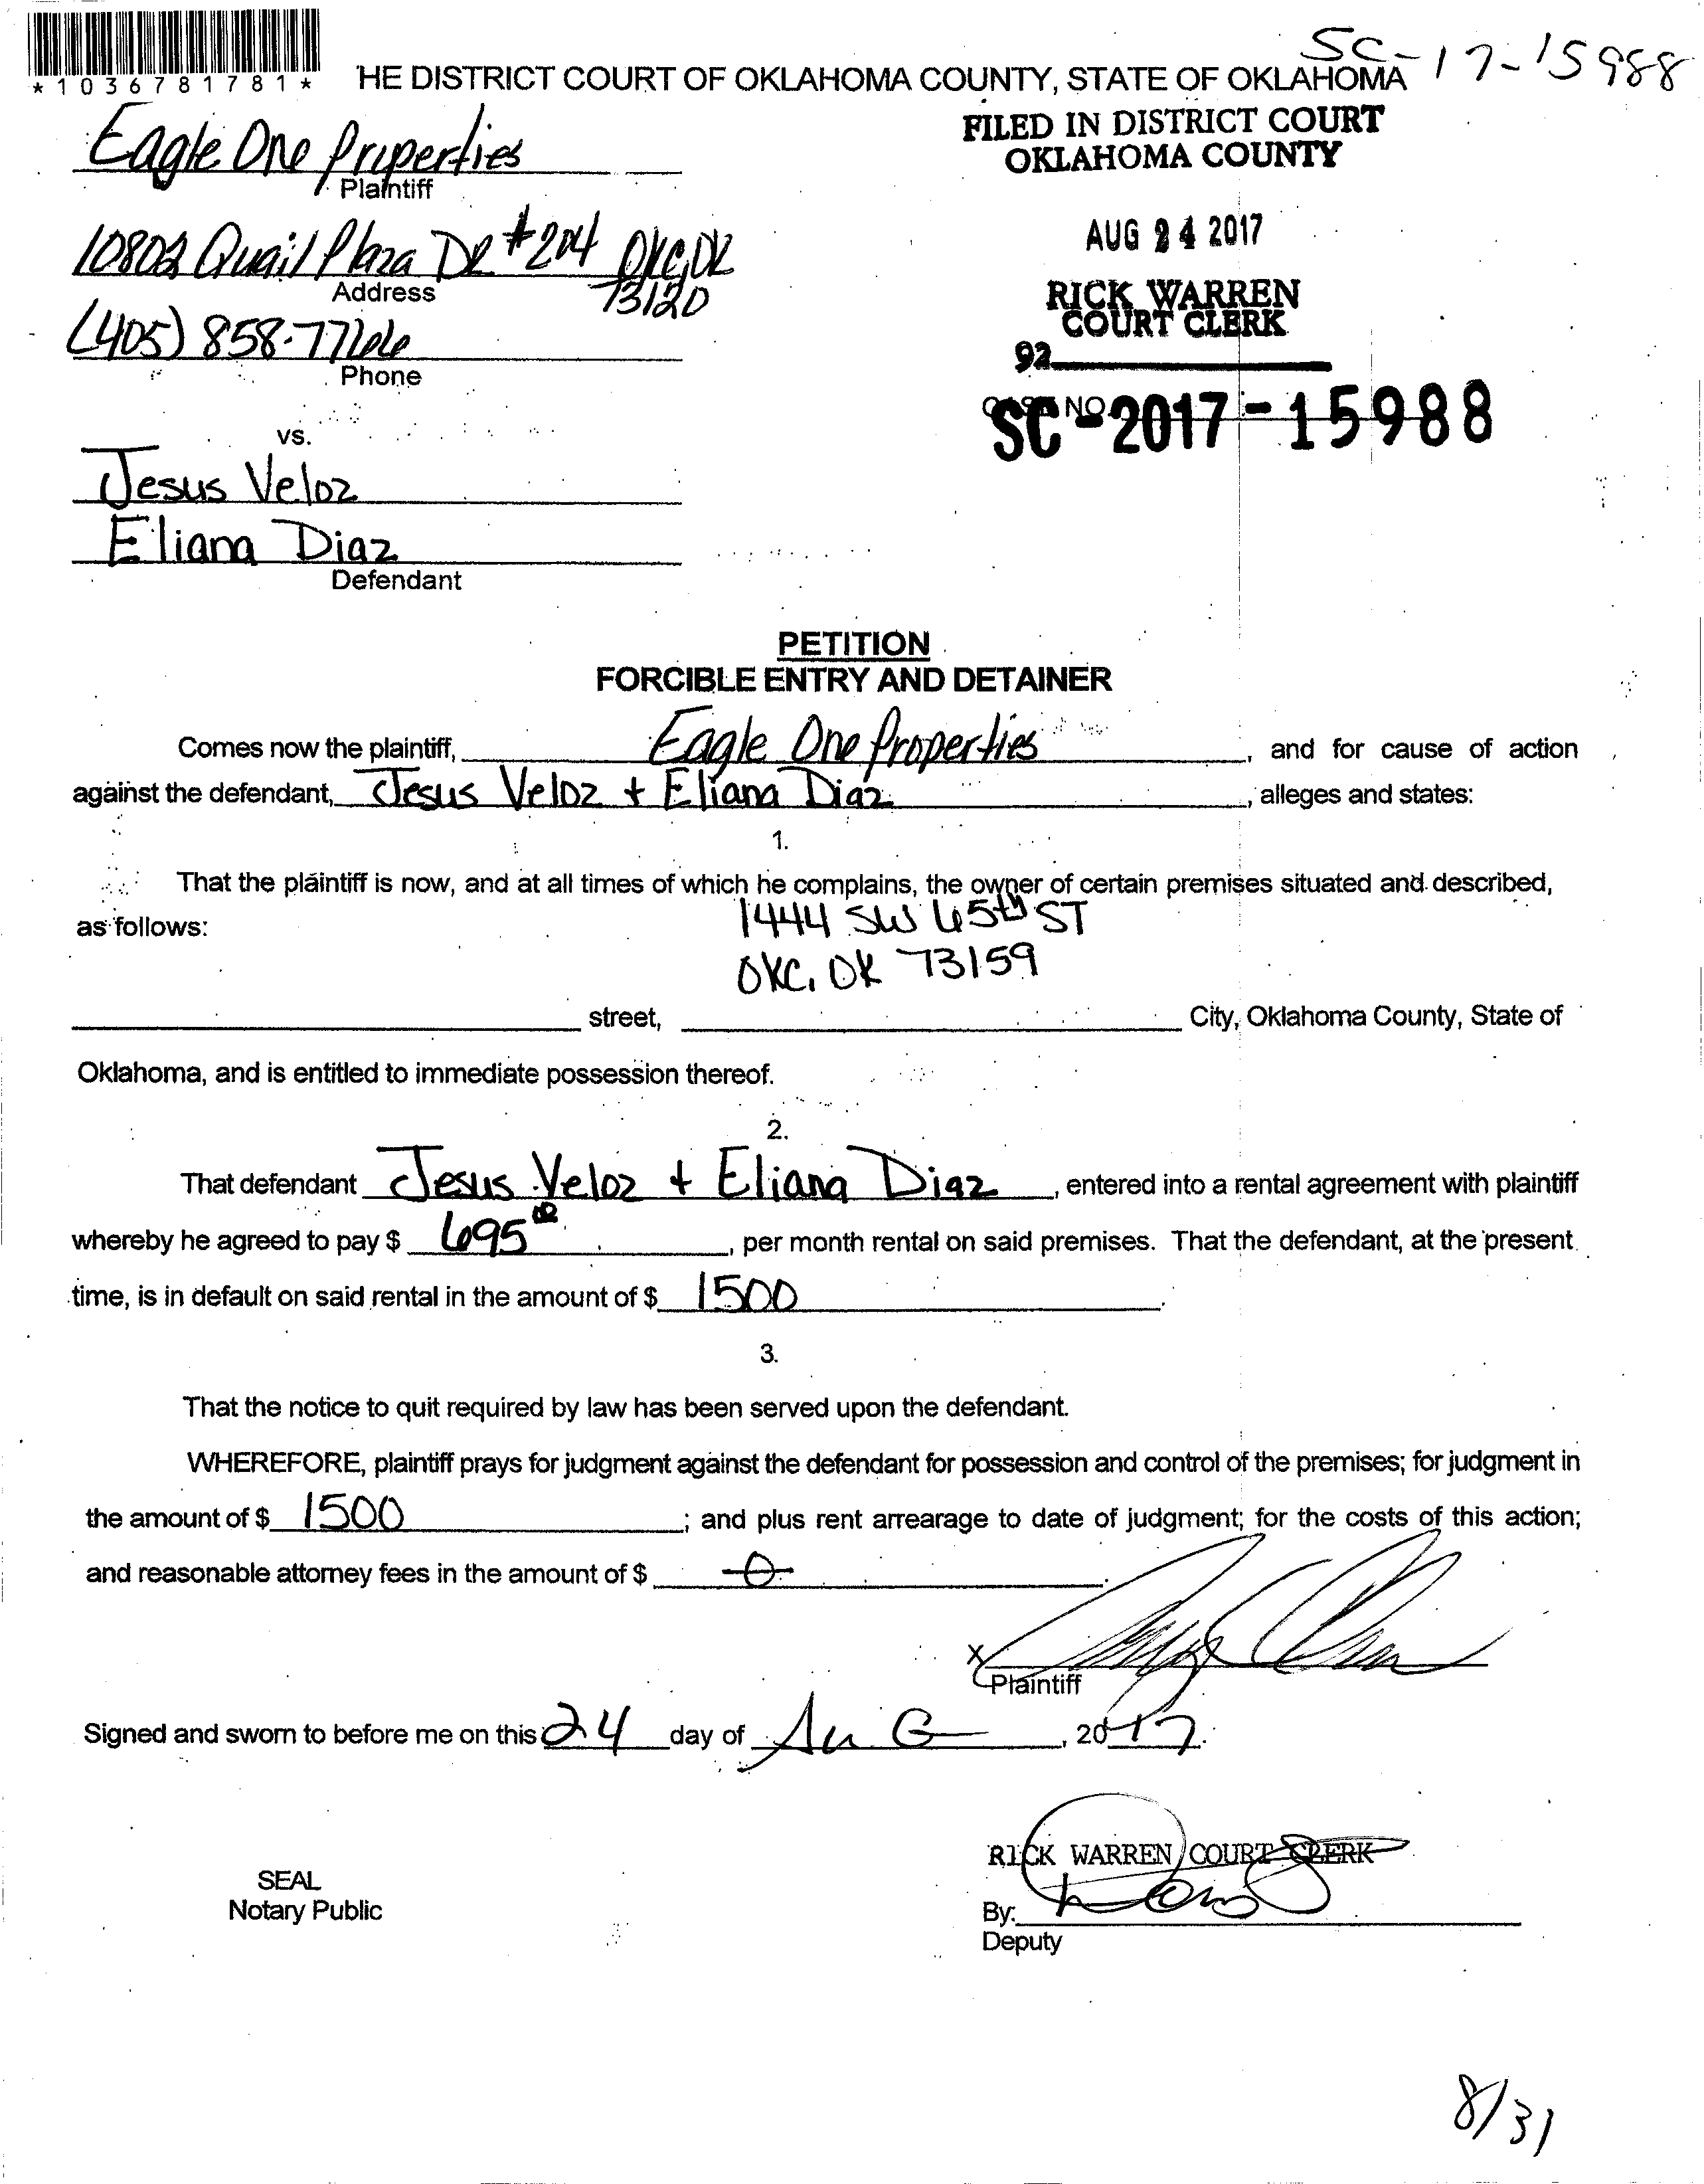 SC-17-15988
*1036781781*
'HE DISTRICT COURT OF OKLAHOMA COUNTY, STATE OF OKLAHOMA
FILED IN DISTRICT COURT
OKLAHOMA COUNTY
Eagle One Properties
Plaintiff
AUG 24 2017
10802 Quail Plaza DR #204 OKC, OK
73120
Address
RICK WARREN
COURT CLERK
(405) 858-7766
Phone
92
NO.
SC-2017-15988
vs.
Jesus Veloz
Eliana Diaz
Defendant
PETITION
FORCIBLE ENTRY AND DETAINER
Comes now the plaintiff, Eagle One Properties, and for cause of action
against the defendant, Jesus Veloz + Eliana Diaz, alleges and states:
1.
That the plaintiff is now, and at all times of which he complains, the owner of certain premises situated and described,
as follows: 1444 SW 65th ST
OKC, OK 73159
street, City, Oklahoma County, State of
Oklahoma, and is entitled to immediate possession thereof.
2.
That defendant Jesus Veloz + Eliana Diaz, entered into a rental agreement with plaintiff
whereby he agreed to pay $ 695 00, per month rental on said premises. That the defendant, at the present
time, is in default on said rental in the amount of $ 1500.
3.
That the notice to quit required by law has been served upon the defendant.
WHEREFORE, plaintiff prays for judgment against the defendant for possession and control of the premises; for judgment in
the amount of $ 1500; and plus rent arrearage to date of judgment; for the costs of this action;
and reasonable attorney fees in the amount of $ 0.
X
Plaintiff
Signed and sworn to before me on this 24 day of AuG, 2017.
RICK WARREN COURT CLERK
SEAL
Notary Public
By:
Deputy
8/31